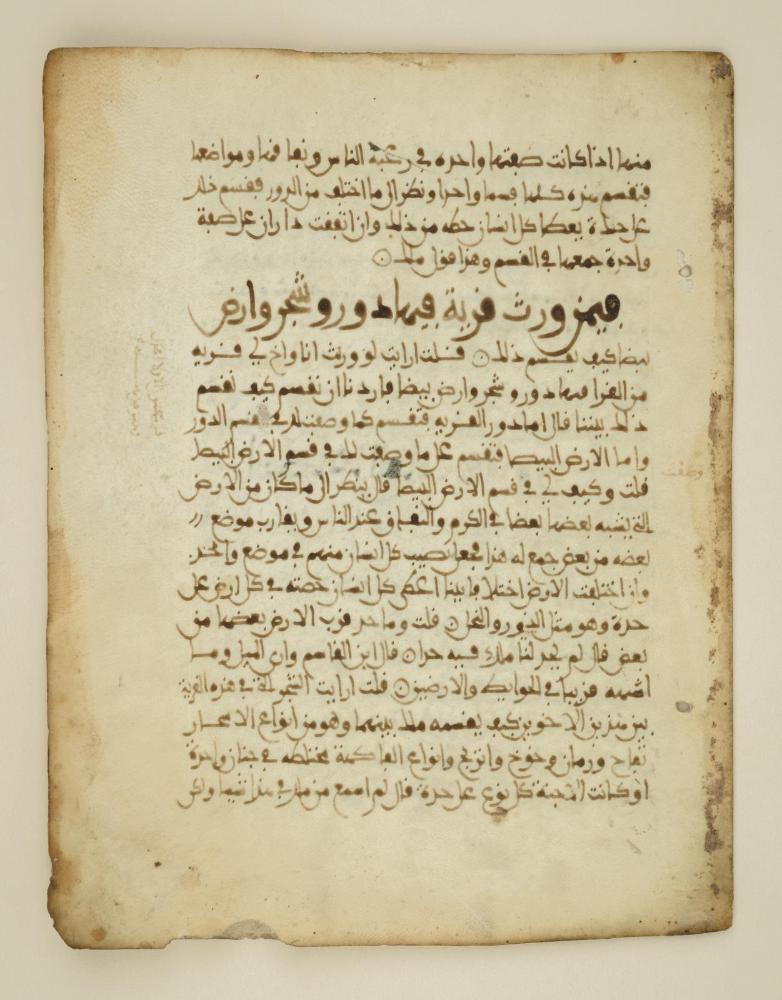 منها اذا كانت صفتها واحدة في رغبة الناس ونفاقها ومواضعها
فتقسم هذه كلها قسما واحدا ونظر الى ما اختلف من الدور فقسم ذلك
على حدة يعطا كل انسان حظه من ذلك وان اتفقت داران على صفة
واحدة جمعهما في القسم وهذا قول ملك
فيمن ورث قرية فيها دور وشجر وارض
بيضا كيف يقسم ذلك قلت ارايت لو ورثت انا واخ لي قرية
من القرا فيها دور وشجر وارض بيضا فاردنا ان نقسم كيف نقسم
ذلك بيننا قال اما دور القرية فتقسم كما وصفت لك في قسم الدور
واما الارض البيضا فتقسم على ما وصفت لك في قسم الارض البيضا
قلت وكيف لي في قسم الارض البيضا قال ينظر الى ما كان من الارض
التي يشبه بعضها بعضا في الكرم والنفاق عند الناس ويقارب موضع
بعضه من بعض جمع له هذا فجعل نصيب كل انسان منهم في موضع واحد
وان اختلفت الارض اختلافا بينا اعطي كل انسان حصته في كل ارض على
حدة وهو مثل الدور والنخل قلت وما حد قرب الارض بعضها من
بعض قال لم يحد لنا ملك فيه حدا قال ابن القاسم وارى الميل وما
اشبهه قريبا في الحوايط والارضين قلت ارايت الشجر التي في هذه القرية
بين هذين الاخوين كيف يقسمه ملك بينهما وهو من انواع الاشجار
تفاح ورمان وخوخ واترنج وانواع الفاكهة مختلطة في جنان واحدة
او كانت الاجنة كل نوع على حدة قال لم اسمع من ملك في هذا شيا ولكن